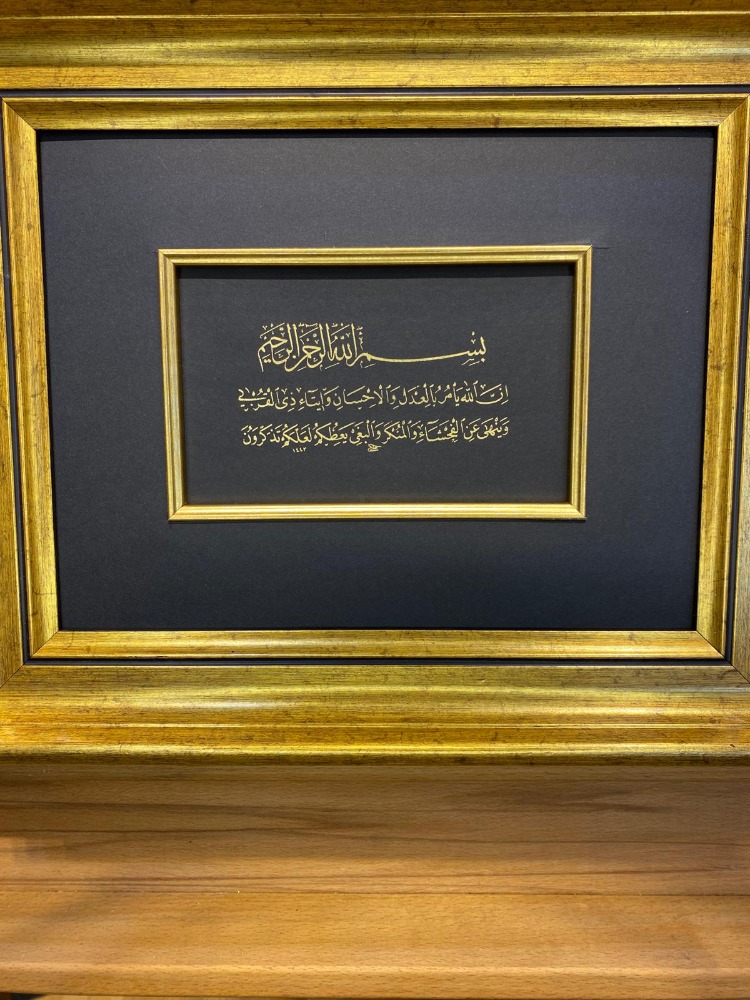 بِسْمِ اللّٰهِ الرَّحْمٰنِ الرَّحِيمِ
اِنَّ اللّٰهَ يَأْمُرُ بِالْعَدْلِ وَالْاِحْسَانِ وَاِيتَاءِ ذِى الْقُرْبٰى
وَيَنْهٰى عَنِ الْفَحْشَاءِ وَالْمُنْكَرِ وَالْبَغْىِ يَعِظُكُمْ لَعَلَّكُمْ تَذَكَّرُونَ
١٤٤٣